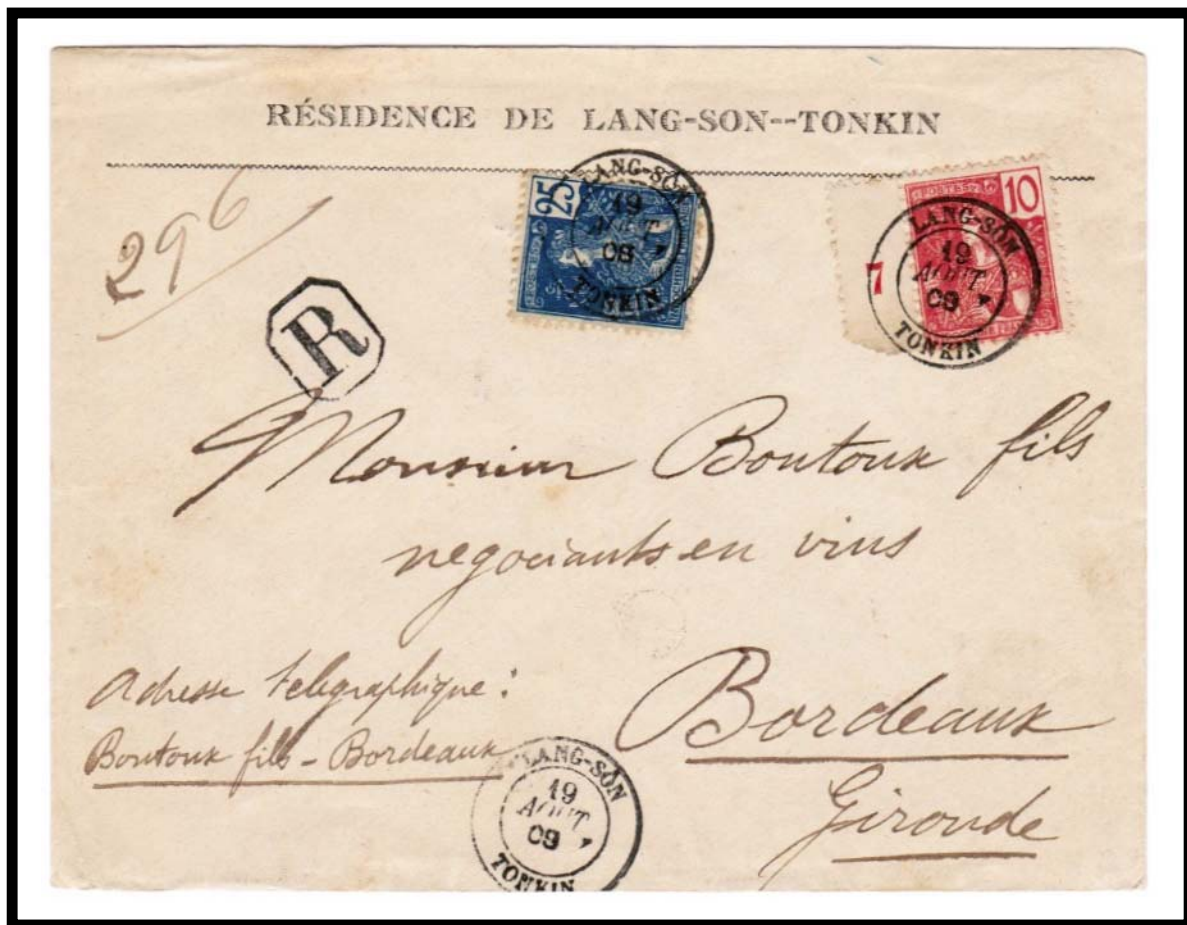 RÉSIDENCE DE LANG-SON--TONKIN
296
R
25
LANG-SƠN
19
AOUT
09
TONKIN
POSTES
10
LANG-SƠN
7
19
AOUT
09
TONKIN
Monsieur Boutoux fils
negociants en vins
Bordeaux
Gironde
Adresse telegraphique:
Boutoux fils - Bordeaux
LANG-SƠN
19
AOUT
09
TONKIN